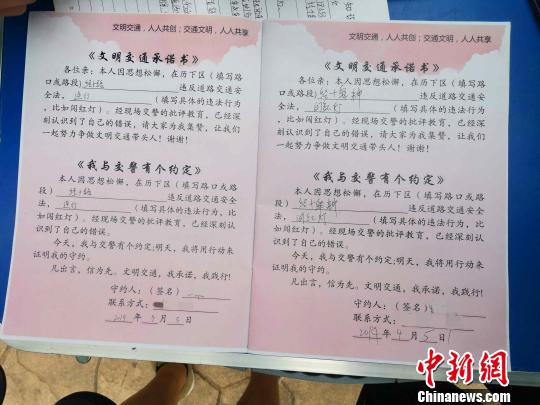 文明交通，人人共创；交通文明，人人共享
《文明交通承诺书》
各位亲：本人因思想松懈，在历下区（填写路
口或路段）经十路 违反道路交通安
全法，逆行（填写具体的违法行为，
比如闯红灯）。经现场交警的批评教育，已经深
刻认识到了自己的错误，请大家为我集赞，让我们
一起努力争做文明交通带头人！谢谢！
《我与交警有个约定》
本人因思想松懈，在历下区（填写路口或路
段）经十路 违反道路交通安全法，
逆行（填写具体的违法行为，比如
闯红灯）。经现场交警的批评教育，已经深刻认
识到了自己的错误。
今天，我与交警有个约定;明天，我将用行动来
证明我的守约。
凡出言，信为先。文明交通，我承诺，我践行!
守约人：（签名）
联系方式：
年 月 日
文明交通，人人共创；交通文明，人人共享
《文明交通承诺书》
各位亲：本人因思想松懈，在历下区（填写路
口或路段）经十 违反道路交通安
全法，闯红灯（填写具体的违法行为，
比如闯红灯）。经现场交警的批评教育，已经深
刻认识到了自己的错误，请大家为我集赞，让我们
一起努力争做文明交通带头人！谢谢！
《我与交警有个约定》
本人因思想松懈，在历下区（填写路口或路
段）经十 违反道路交通安全法，
闯红灯（填写具体的违法行为，比如
闯红灯）。经现场交警的批评教育，已经深刻认
识到了自己的错误。
今天，我与交警有个约定;明天，我将用行动来
证明我的守约。
凡出言，信为先。文明交通，我承诺，我践行!
守约人：（签名）
联系方式：
2019 年 4 月 5 日
中新网
Chinanews.com